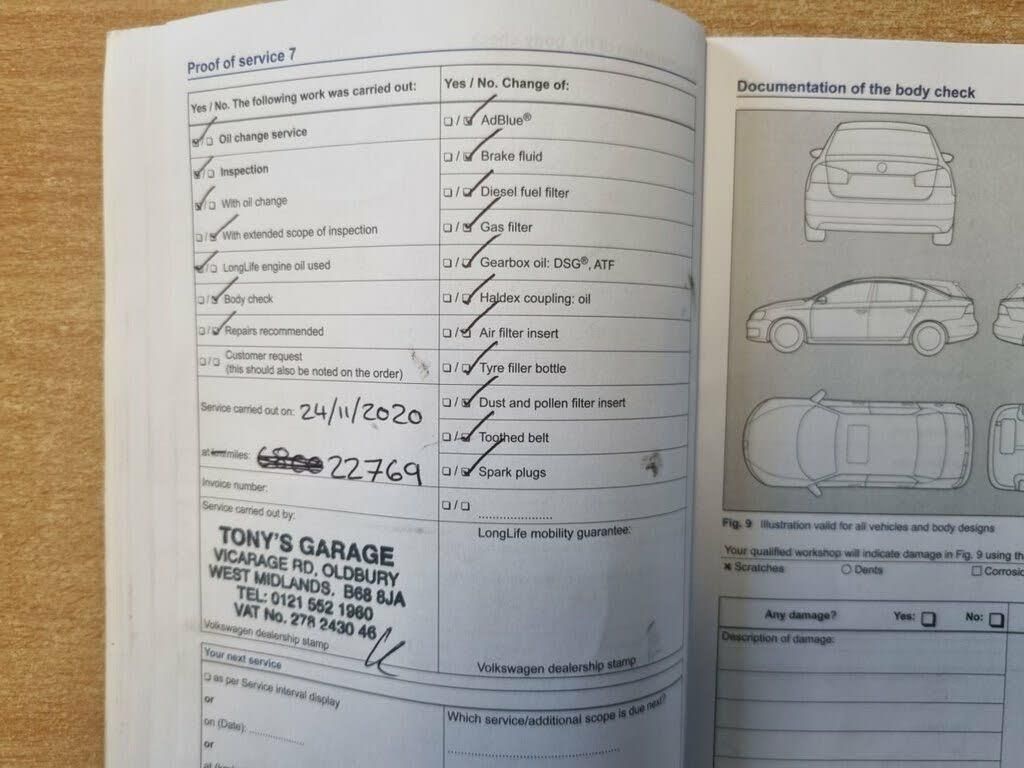 Proof of service 7
Yes / No. The following work was carried out:
Oil change service
Inspection
With oil change
With extended scope of inspection
LongLife engine oil used
Body check
Repairs recommended
Customer request
(this should also be noted on the order)
Service carried out on: 24/11/2020
at km/miles: 22769
Invoice number:
Service carried out by:
TONY'S GARAGE
VICARAGE RD, OLDBURY
WEST MIDLANDS. B68 8JA
TEL: 0121 552 1960
VAT No. 278 2430 46
Volkswagen dealership stamp
Your next service
as per Service interval display
or
on (Date): ................
or
Yes / No. Change of:
AdBlue®
Brake fluid
Diesel fuel filter
Gas filter
Gearbox oil: DSG®, ATF
Haldex coupling: oil
Air filter insert
Tyre filler bottle
Dust and pollen filter insert
Toothed belt
Spark plugs
LongLife mobility guarantee:
Volkswagen dealership stamp
Which service/additional scope is due next?
Documentation of the body check
Fig. 9 Illustration valid for all vehicles and body designs
Your qualified workshop will indicate damage in Fig. 9 using
Scratches Dents
Any damage? Yes: No:
Description of damage: